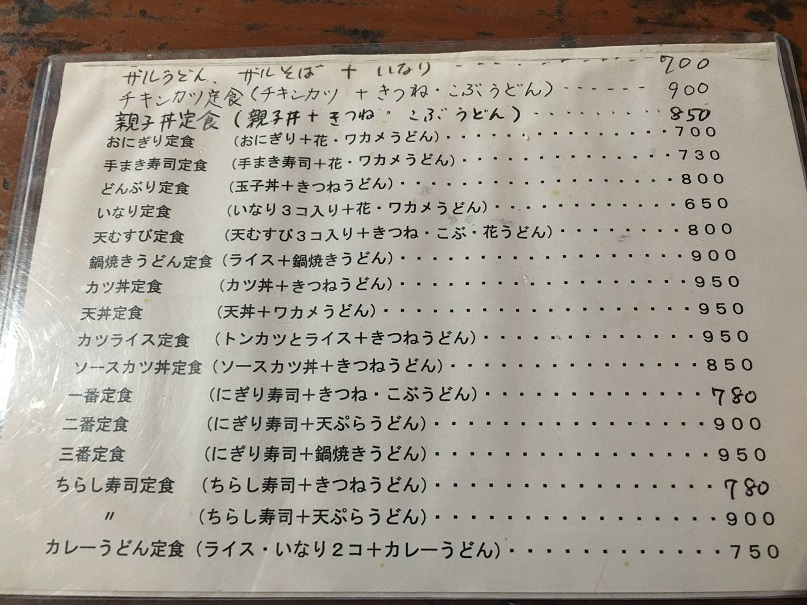 ザルうどん、ザルそば + いなり ----- 700
チキンカツ定食(チキンカツ + きつね・こぶうどん) ------ 900
親子丼定食(親子丼+きつね・こぶうどん)・・・・・・・ 850
おにぎり定食 (おにぎり+花・ワカメうどん)・・・・・・・・・・・・700
手まき寿司定食 (手まき寿司+花・ワカメうどん)・・・・・・・・・・・730
どんぶり定食 (玉子丼+きつねうどん)・・・・・・・・・・・・・・800
いなり定食 (いなり3コ入り+花・ワカメうどん)・・・・・・・・・650
天むすび定食 (天むすび3コ入り+きつね・こぶ・花うどん)・・・・・・800
鍋焼きうどん定食(ライス+鍋焼きうどん)・・・・・・・・・・・・・・900
カツ丼定食 (カツ丼+きつねうどん)・・・・・・・・・・・・・・950
天丼定食 (天丼+ワカメうどん)・・・・・・・・・・・・・・・950
カツライス定食 (トンカツとライス+きつねうどん)・・・・・・・・・・950
ソースカツ丼定食(ソースカツ丼+きつねうどん)・・・・・・・・・・・850
一番定食 (にぎり寿司+きつね・こぶうどん)・・・・・・・・・・780
二番定食 (にぎり寿司+天ぷらうどん)・・・・・・・・・・・・900
三番定食 (にぎり寿司+鍋焼きうどん)・・・・・・・・・・・・950
ちらし寿司定食 (ちらし寿司+きつねうどん)・・・・・・・・・・・・780
〃 (ちらし寿司+天ぷらうどん)・・・・・・・・・・・・900
カレーうどん定食(ライス・いなり2コ+カレーうどん)・・・・・・・・・750